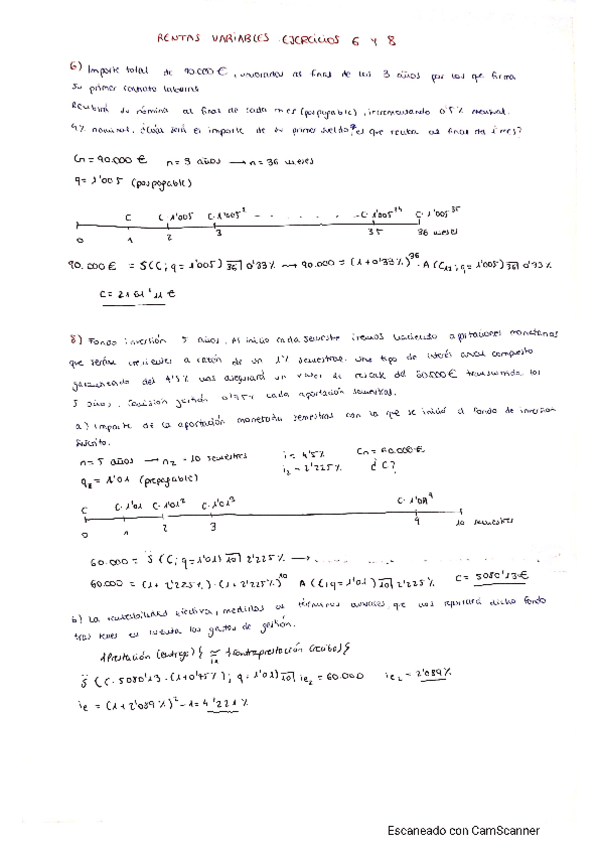 RENTAS VARIABLES EJERCICIOS 6 Y 8
6) Importe total de 90.000 €, valorados al final de los 3 años por los que firma
su primer contrato laboral.
Recibirá su nómina al final de cada mes (pospagable), incrementando 0'5% mensual.
4% nominal, ¿Cuál será el importe de su primer sueldo?, el que recibe al final del 1º mes?
Cn = 90.000 € n = 3 años → n = 36 meses
q = 1'005 (pospagable)
C C·1'005 C·1'005² - - - - - C·1'005³⁴ C·1'005³⁵
0 1 2 3 35 36 meses
90.000 € = S(C; q = 1'005) 36⏋ 0'33% → 90.000 = (1+0'33%)³⁶ · A(C; q = 1'005) 36⏋ 0'33%
C = 2161'11 €
8) Fondo inversión 5 años. Al inicio cada semestre iremos haciendo aportaciones monetarias
que serán crecientes a razón de un 1% semestral. Un tipo de interés anual compuesto
garantizado del 4'5% nos asegurará un valor de rescate del 60.000 € transcurrido los
5 años. Comisión gestión cada aportación semestral.
a) Importe de la aportación monetaria semestral con la que se inició el fondo de inversión
suscrito.
n = 5 años → n₂ = 10 semestres i = 4'5% Cn = 60.000 €
i₂ = 2'225% ¿C?
q₂ = 1'01 (prepagable)
C C·1'01 C·1'01² C·1'01³ C·1'01⁹
0 1 2 3 9 10 semestres
60.000 = S̈ (C; q = 1'01) 10⏋ 2'225% →
60.000 = (1+2'225%)·(1+2'225%)¹⁰ A(C; q = 1'01) 10⏋ 2'225% C = 5080'13 €
b) La rentabilidad efectiva, medida en términos anuales, que nos reportará dicho fondo
tras tener en cuenta los gastos de gestión.
{Prestación (entrega)} ≅ {contraprestación (recibo)}
S̈ (C·5080'13·(1+0'75%); q = 1'01) 10⏋ ie₂ = 60.000 ie₂ = 2'089%
ie = (1+2'089%)² - 1 = 4'221%
Escaneado con CamScanner